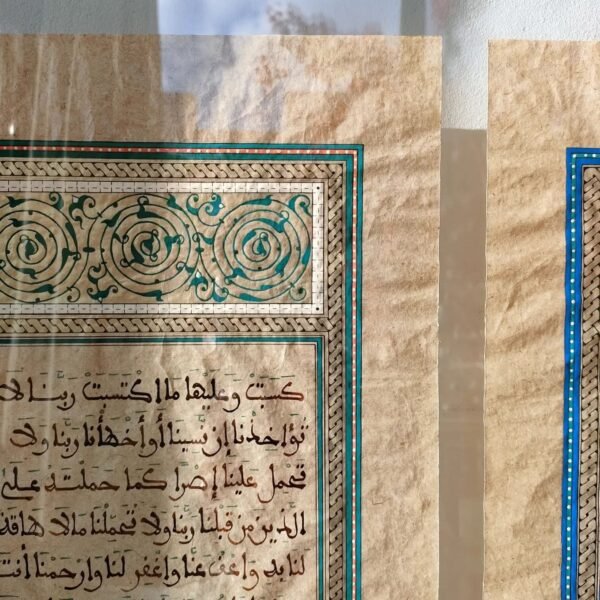 كَسَبَتْ وَعَلَيْها ما اكْتَسَبَتْ رَبَّنا لا
تُؤاخِذْنا إِن نَّسِينا أَوْ أَخْطَأْنا رَبَّنا وَلا
تَحْمِلْ عَلَيْنا إِصْرًا كَما حَمَلْتَهُ عَلَى
الَّذِينَ مِن قَبْلِنا رَبَّنا وَلا تُحَمِّلْنا ما لا طاقَةَ
لَنا بِهِ وَاعْفُ عَنَّا وَاغْفِرْ لَنا وَارْحَمْنا أَنتَ